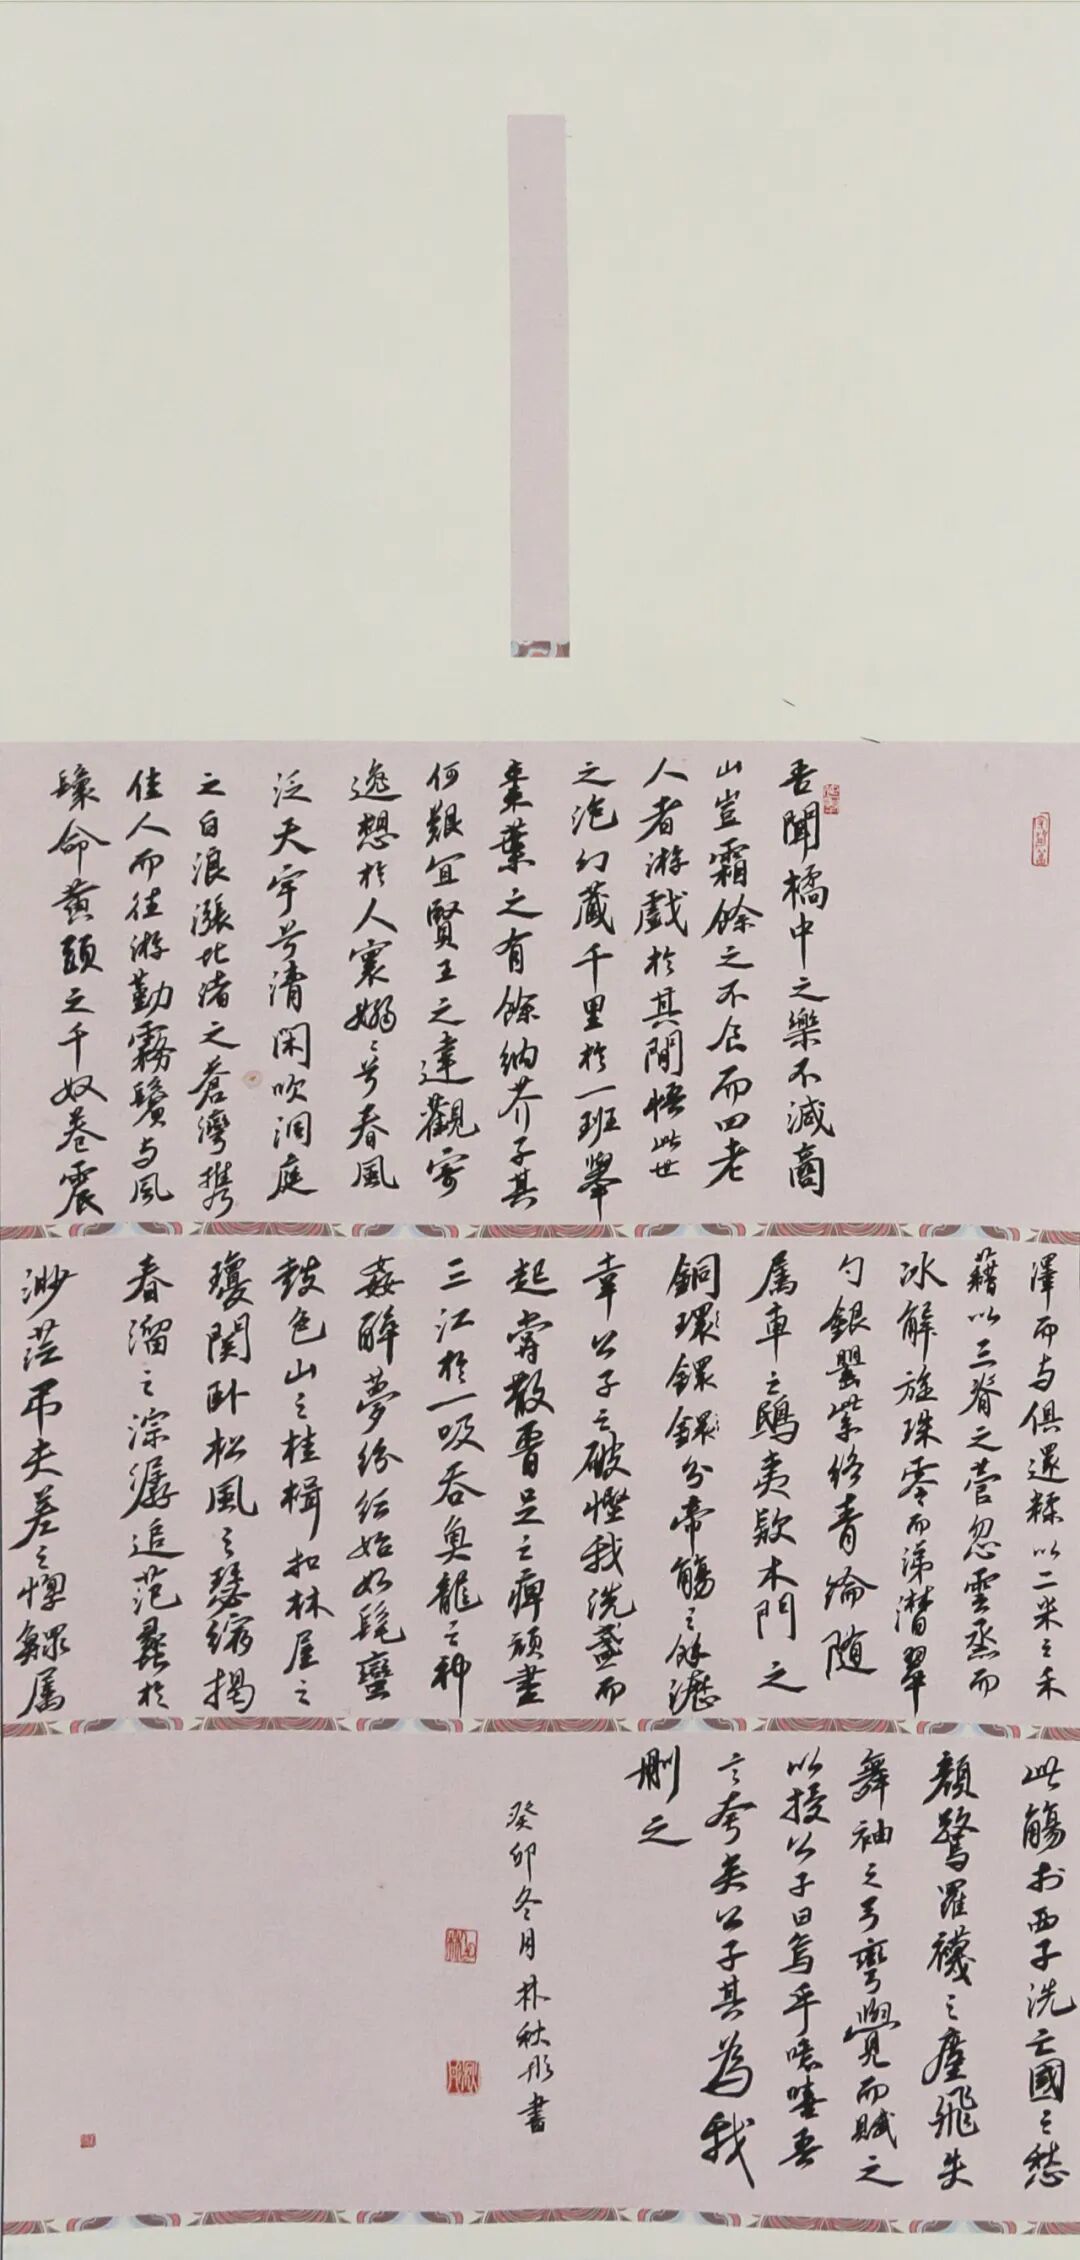 吾聞橘中之樂不減商
山豈霜餘之不食而四老
人者游戲於其間悟此世
之泡幻藏千里於一班舉
棗葉之有餘納芥子其
何艱宜賢王之達觀寄
逸想於人寰嫋〻兮春風
泛天宇兮清閑吹洞庭
之白浪漲北渚之蒼灣携
佳人而往游勤霧鬢与風
鬟命黃頭之千奴卷震
澤而与俱還糅以二米之禾
藉以三脊之菅忽雲烝而
冰解旋珠零而涕潸翠
勺銀罌紫絡青綸随
属車之鴟夷款木門之
銅環鐶鐶分帝觴之餘瀝
幸公子之破慳我洗盞而
起嘗散要足之痺頑盡
三江於一吸吞魚龍之神
姦醉夢紛紜始如髦蠻
鼓包山之桂楫扣林屋之
瓊関卧松風之瑟縮揭
春溜之淙潺追范蠡於
渺茫吊夫差之惸鰥属
此觴於西子洗亡國之愁
顏驚羅襪之塵飛失
舞袖之弓彎覺而賦之
以授公子曰烏乎噫嘻吾
言夸矣公子其為我
刪之
癸卯冬月林秋彤書